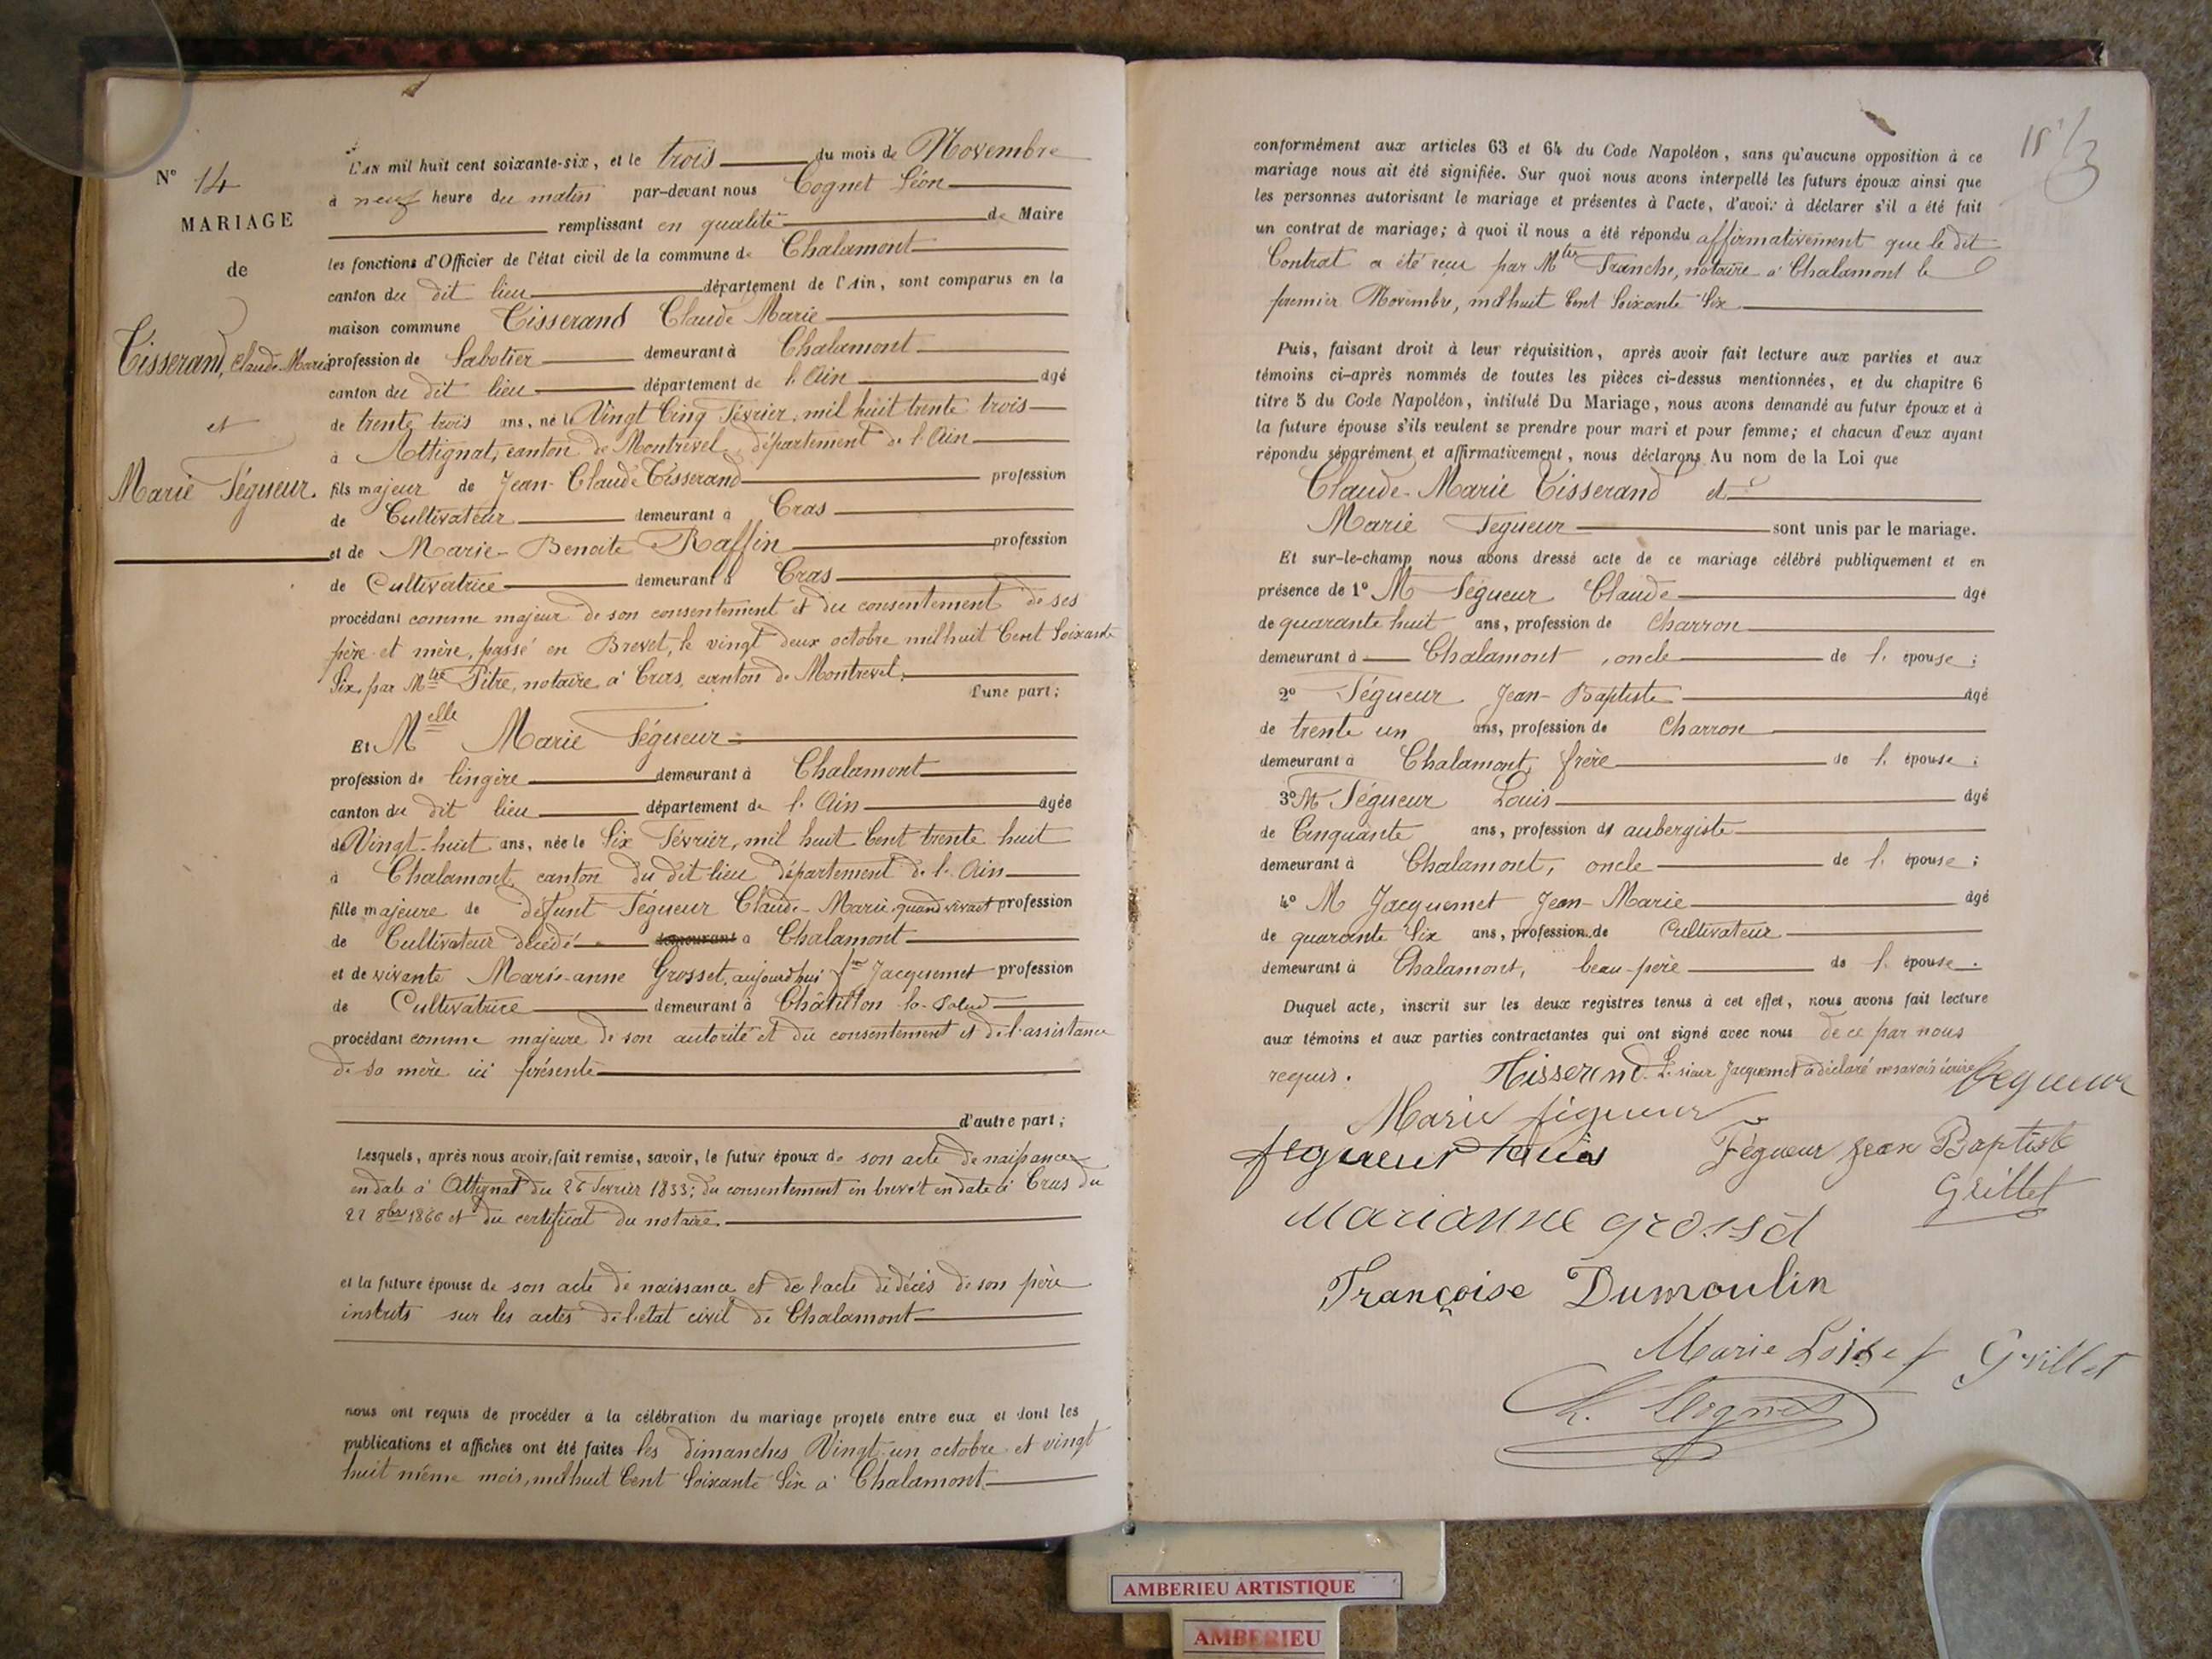 N° 14
MARIAGE
de
Tisserand, Claude-Marie
et
Marie Fégueur.
L'AN mil huit cent soixante-six, et le trois du mois de Novembre
à neuf heure du matin par-devant nous Cognet Léon
remplissant en qualité de Maire
les fonctions d'Officier de l'état civil de la commune de Chalamont
canton du dit lieu département de l'Ain, sont comparus en la
maison commune Tisserand Claude Marie
profession de Sabotier demeurant à Chalamont
canton du dit lieu département de l'Ain âgé
de trente trois ans, né le Vingt Cinq Février, mil huit trente trois
à Attignat, canton de Montrevel, département de l'Ain
fils majeur de Jean-Claude Tisserand profession
de Cultivateur demeurant à Cras
et de Marie-Benoite Raffin profession
de Cultivatrice demeurant à Cras
procédant comme majeur de son consentement et du consentement de ses
père et mère, passé en Brevet, le vingt deux octobre mil huit Cent Soixante
Six, par Mtre Pitre, notaire à Cras, canton de Montrevel.
d'une part;
Et Melle Marie Fégueur
profession de lingère demeurant à Chalamont
canton du dit lieu département de l'Ain âgée
de Vingt-huit ans, née le Six Février, mil huit Cent trente huit
à Chalamont, canton du dit lieu département de l'Ain
fille majeure de défunt Fégueur Claude-Marie, quand vivait profession
de Cultivateur décédé demeurant à Chalamont
et de vivante Marie-anne Grosset, aujourdhui fme Jacquemet profession
de Cultivatrice demeurant à Châtillon la-Palud
procédant comme majeure de son autorité et du consentement et de l'assistance
de sa mère ici présente
d'autre part;
Lesquels, après nous avoir fait remise, savoir, le futur époux de son acte de naissance
en date à Attignat du 26 Fevrier 1833; du consentement en brevet en date à Cras du
22 8bre 1866 et du certificat du notaire.
et la future épouse de son acte de naissance et de l'acte de décès de son père
inscrits sur les actes de l'état civil de Chalamont
nous ont requis de procéder à la célébration du mariage projeté entre eux et dont les
publications et affiches ont été faites les dimanches Vingt-un octobre et vingt
huit même mois, mil huit Cent Soixante Six à Chalamont.
conformément aux articles 63 et 64 du Code Napoléon, sans qu'aucune opposition à ce
mariage nous ait été signifiée. Sur quoi nous avons interpellé les futurs époux ainsi que
les personnes autorisant le mariage et présentes à l'acte, d'avoir à déclarer s'il a été fait
un contrat de mariage; à quoi il nous a été répondu affirmativement que le dit
Contrat a été reçu par Mtre Tranche, notaire à Chalamont le
premier Novembre, mil huit Cent Soixante Six
Puis, faisant droit à leur réquisition, après avoir fait lecture aux parties et aux
témoins ci-après nommés de toutes les pièces ci-dessus mentionnées, et du chapitre 6
titre 5 du Code Napoléon, intitulé Du Mariage, nous avons demandé au futur époux et à
la future épouse s'ils veulent se prendre pour mari et pour femme; et chacun d'eux ayant
répondu séparément et affirmativement, nous déclarons Au nom de la Loi que
Claude-Marie Tisserand et
Marie Fégueur sont unis par le mariage.
Et sur-le-champ nous avons dressé acte de ce mariage célébré publiquement et en
présence de 1° M Fégueur Claude âgé
de quarante huit ans, profession de Charron
demeurant à Chalamont, oncle de l'épouse;
2° Fégueur Jean-Baptiste âgé
de trente un ans, profession de Charron
demeurant à Chalamont, frère de l'épouse;
3° M Fégueur Louis âgé
de Cinquante ans, profession d'aubergiste
demeurant à Chalamont, oncle de l'épouse;
4° M Jacquemet Jean-Marie âgé
de quarante Six ans, profession de Cultivateur
demeurant à Chalamont, beau-père de l'épouse.
Duquel acte, inscrit sur les deux registres tenus à cet effet, nous avons fait lecture
aux témoins et aux parties contractantes qui ont signé avec nous de ce par nous
requis. Tisserand. Le sieur Jacquemet a déclaré ne savoir écrire Fegueur
Marie figueur
fegueur Louis Fégueur Jean Baptiste
Grillet
Marianne grosset
Françoise Dumoulin
Marie Grillet
L. Cognet
AMBERIEU ARTISTIQUE
AMBERIEU